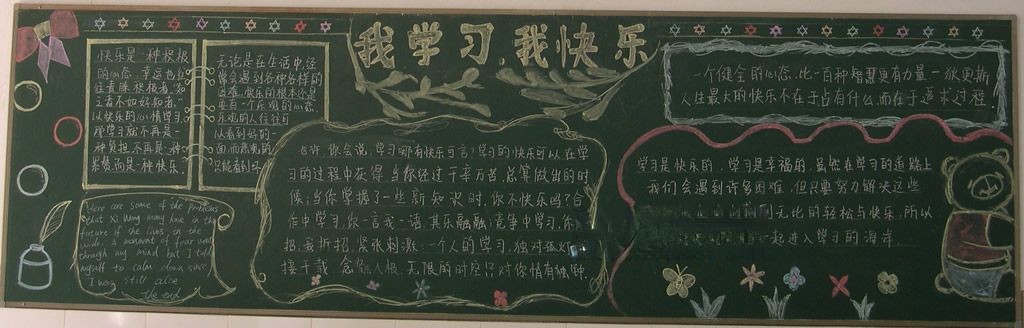 我学习，我快乐
快乐是一种积极
的心态，幸运也往
往青睐积极者，“知
之者不如好知者”
以快乐的心情学习，
学习就不再是一
种负担，不再是一种
累赘，而是一种快乐．
无论是在生活中，还
常会遇到各种各样的
困难，快乐的根本还是
要有一个乐观的心态，
乐观的人往往可
以看到好的一
面，而悲观的
只能看到坏
Here are some of the problems
that Xi Wang may have in the
future if she lives in the
wild. A moment of fear went
through my mind but I told
myself to calm down since
I was still alive
The end
也许，你会说，学习哪有快乐可言？学习的快乐可以在学
习的过程中获得，当你经过千辛万苦，总算做出的时
候；当你掌握了一些新知识时，你不快乐吗？合
作中学习，你一言我一语，其乐融融；竞争中学习，你
招，我拆招，紧张刺激；一个人的学习，独对孤灯
接千载，念 人极，无限的时空只对你情有独钟．
一个健全的心态，比一百种智慧更有力量一狄更斯
人生最大的快乐不在于占有什么，而在于追求过程．
学习是快乐的，学习是幸福的，虽然在学习的道路上
我们会遇到许多困难，但只要努力解决这些
到无比的轻松与快乐，所以
一起进入学习的海岸．